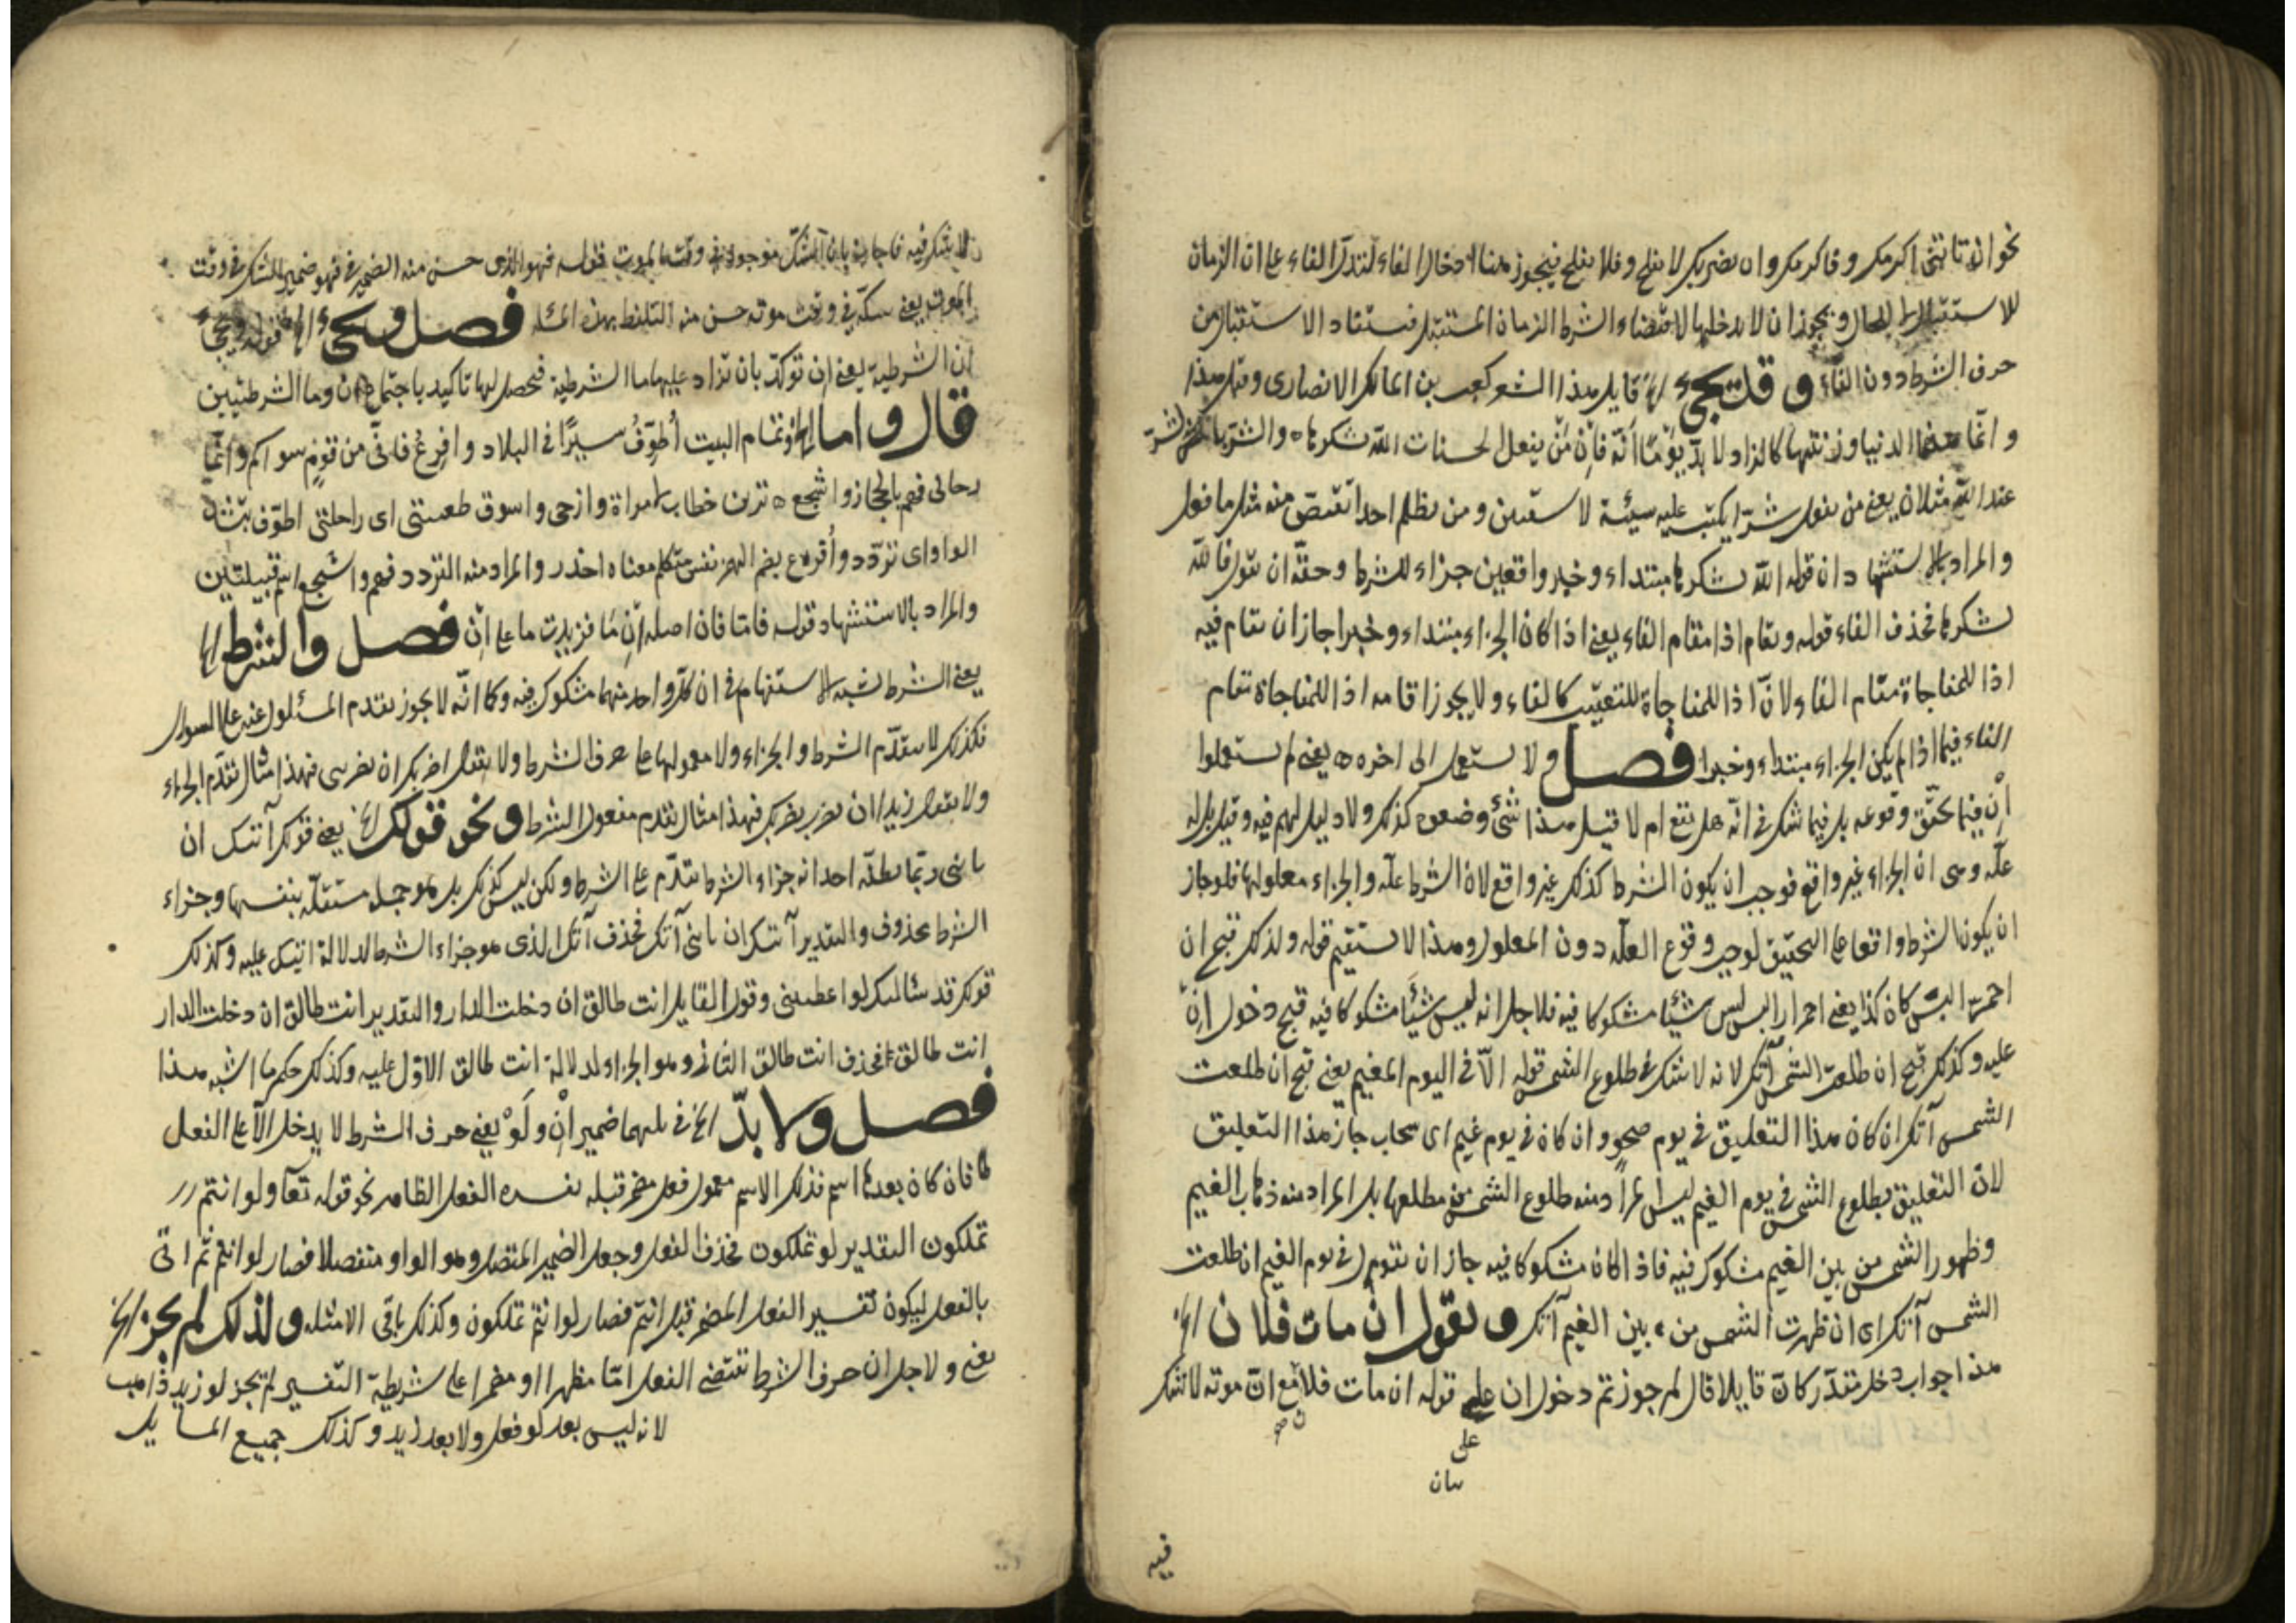 نحو ان تاتنى اكرمك وفاكرمك وان نضربك لا تفلح وفلا تفلح فيجوز هنا ادخال الفاء لتدل الفاء على ان الزمان
للاستقبال للحال ويجوز ان لا يدخلها لاقتضاء الشرط الزمان المستقبل فيستفاد الاستقبال من
حرف الشرط دون الفاء وقد يجئ الخ قايل هذا الشعر كعب بن مالك الانصارى وقبل هذا
وانما هذه الدنيا وزينتها كالزاد لا بد يومًا انه فان من يفعل الحسنات الله يشكرها والشر بالشر
عند الله مثلان يعنى من يفعل شرّا يكتب عليه سيئة ومن يظلم احدا تقتص منه مثل ما فعل
والمراد بالاستشهاد ان قوله الله يشكرها مبتداء وخبر واقعين جزاء للشرط وحقه ان يقول فالله
يشكرها فحذف الفاء قوله ويقام اذا مقام الفاء يعنى اذا كان الجزاء مبتداء وخبرا جاز ان يقام فيه
اذا للمفاجاة مقام الفاء لانّ اذا للمفاجاة للتعقيب كالفاء ولا يجوز اقامة اذا للمفاجاة مقام
الفاء فيما اذا لم يكن الجزاء مبتداء وخبرا فصل ولا يستعمل الى اخره يعنى لم يستعملوا
اِنْ فيما تحقق وقوعه بل فيما شك فى انّه هل يقع ام لا قيل هذا شئ وضعوه كذلك ولا دليل لهم فيه وقيل بل له
علة وهى ان الجزاء غير واقع فوجب ان يكون الشرط كذلك غير واقع لان الشرط علة والجزاء معلولها فلو جاز
ان يكون الشرط واقعا على التحقيق لوجب وقوع العلة دون المعلول وهذا لا يستقيم قوله ولذلك قبح ان
احمر البسر كان كذا يعنى احمرار البسر ليس شيئا مشكوكا فيه فلاجل انه ليس شيئًا مشكوكا فيه قبح دخول اِنْ
عليه وكذلك قبح ان طلعت الشمس آتك لانه لا شك فى طلوع الشمس قوله الّا فى اليوم المغيم يعنى قبح ان طلعت
الشمس آتك ان كان هذا التعليق فى يوم صحو وان كان فى يوم غيم اى سحاب جاز هذا التعليق
لانّ التعليق بطلوع الشمس فى يوم الغيم ليس المراد منه طلوع الشمس من مطلعها بل المراد منه ذهاب الغيم
وظهور الشمس من بين الغيم مشكوك فيه فاذا كان مشكوكا فيه جاز ان تقول فى يوم الغيم ان طلعت
الشمس آتك اى ان ظهرت الشمس من بين الغيم آتك وتقول ان مات فلان الخ
هذا جواب دخل مقدّر كانّ قايلا قال لم جوزتم دخول ان على قوله ان مات فلان مع انّ موته لا شك
على
بيان
فيه
لا يشك فيه فاجاب بان الشك موجود فى وقت الموت قوله فهو الذى حسن منه الضمير فى فهو ضمير الشك فى وقت
الموت يعنى شكه فى وقت موته حسن منه التلفظ بهذه المسئلة فصل ويجئ الخ قوله ويجئ
ان الشرطية يعنى ان تؤكد بان تزاد عليها ما الشرطية فحصل لها تاكيد باجتماع ان وما الشرطيتين
قال واما الخ وتمام البيت اُطوِّفُ سيرًا فى البلاد وافرعُ فانّى من قومٍ سواكم وانّما
رجالى فهم بالحجاز واشجع ترين خطاب امراة وازجى واسوق ظعينتى اى راحلتى اطوّف بتشديد
الواو اى تردّد واُفرع بضم الهمز نفس متكلم معناه احذر والمراد منه التردد فهم واشجع اسم قبيلتين
والمراد بالاستشهاد قوله فامّا فان اصله اِنْ مَا فزيدت ما على اِنْ فصل والشرط الخ
يعنى الشرط شبه الاستفهام فى ان كل واحد منهما مشكوك فيه وكما انّه لا يجوز تقدم المسئول عنه على السوال
فكذلك لا يتقدّم الشرط والجزاء ولا معمولها على حرف الشرط ولا يقال اضربك ان تضربنى فهذا مثال تقدّم الجزاء
ولا يقال زيدا ان تضرب نضربك فهذا مثال تقدم مفعول الشرط ونحو قولك الخ يعنى قولك آتيك ان
تاتنى ربّما يظنّه احد انه جزاء الشرط تقدّم على الشرط ولكن ليس كذلك بل هو جملة مستقلّة بنفسها وجزاء
الشرط محذوف والتقدير آتيك ان تاتنى آتك فحذف آتك الذى هو جزاء الشرط لدلالة آتيك عليه وكذلك
قولك قد سالتك لو اعطيتنى وقول القايل انت طالق ان دخلت الدار والتقدير انت طالق ان دخلت الدار
انت طالق فحذف انت طالق الثانى وهو الجزاء لدلالة انت طالق الاوّل عليه وكذلك حكم ما اشبه هذا
فصل ولا بدّ الخ فى يليهما ضمير اِنْ ولَوْ يعنى حرف الشرط لا يدخل الّا على الفعل
فان كان بعدها اسم فذلك الاسم معمول فعل مضمر قبله يفسره الفعل الظاهر نحو قوله تعا ولو انتم
تملكون التقدير لو تملكون فحذف الفعل وجعل الضمير المتصل وهو الواو منفصلا فصار لو انتم ثم اتى
بالفعل ليكون تفسير الفعل المضمر قبل انتم فصار لو انتم تملكون وكذلك باقى الامثلة ولذلك لم يجز الخ
يعنى ولاجل ان حرف الشرط تقتضى الفعل امّا مظهرا او مضمرا على شريطة التفسير لم تجز لو زيد ذاهب
لانه ليس بعد لو فعل ولا بعد زيد وكذلك جميع المسايل